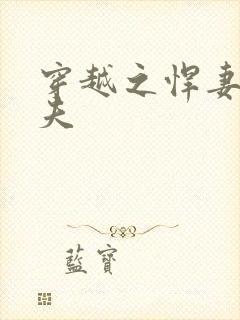 穿越之悍妻
夫
藍寶